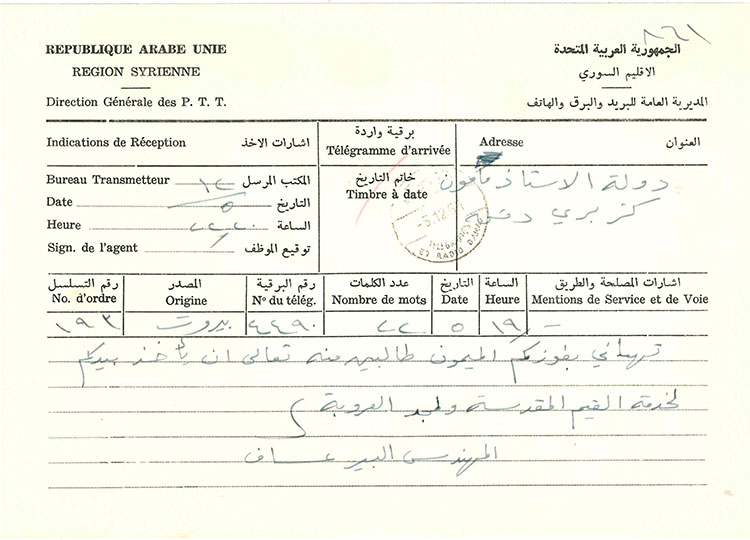 ٨٦١
REPUBLIQUE ARABE UNIE
الجمهورية العربية المتحدة
REGION SYRIENNE
الاقليم السوري
Direction Générale des P. T. T.
المديرية العامة للبريد والبرق والهاتف
Indications de Réception اشارات الاخذ
برقية واردة
Télégramme d'arrivée
Adresse العنوان
Bureau Transmetteur المكتب المرسل
Date ٥ التاريخ
Heure الساعة
Sign. de l'agent توقيع الموظف
خاتم التاريخ
Timbre à date
دولة الاستاذ مأمون
كزبري دمشق
رقم التسلسل المصدر رقم البرقية عدد الكلمات التاريخ الساعة اشارات المصلحة والطريق
No. d'ordre Origine Nº du télég. Nombre de mots Date Heure Mentions de Service et de Voie
١٩٣ بيروت ٤٤٩٠ ٢٢ ٥ ١٩
تهانئي بفوزكم الميمون طالبين منه تعالى ان يأخذ بيدكم
لخدمة القيم المقدسة ولمجد العروبة
المهندس البير عساف